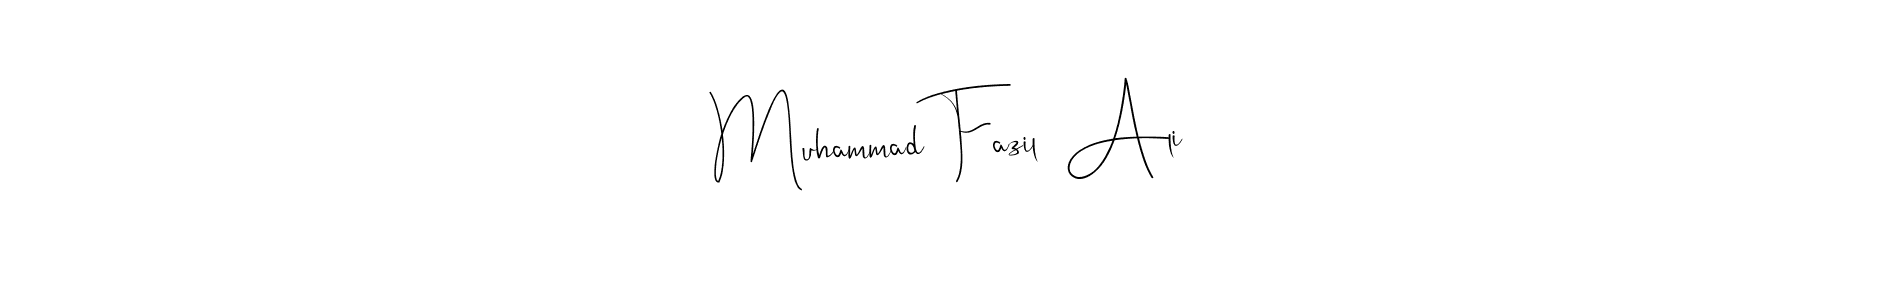 Muhammad Fazil Ali